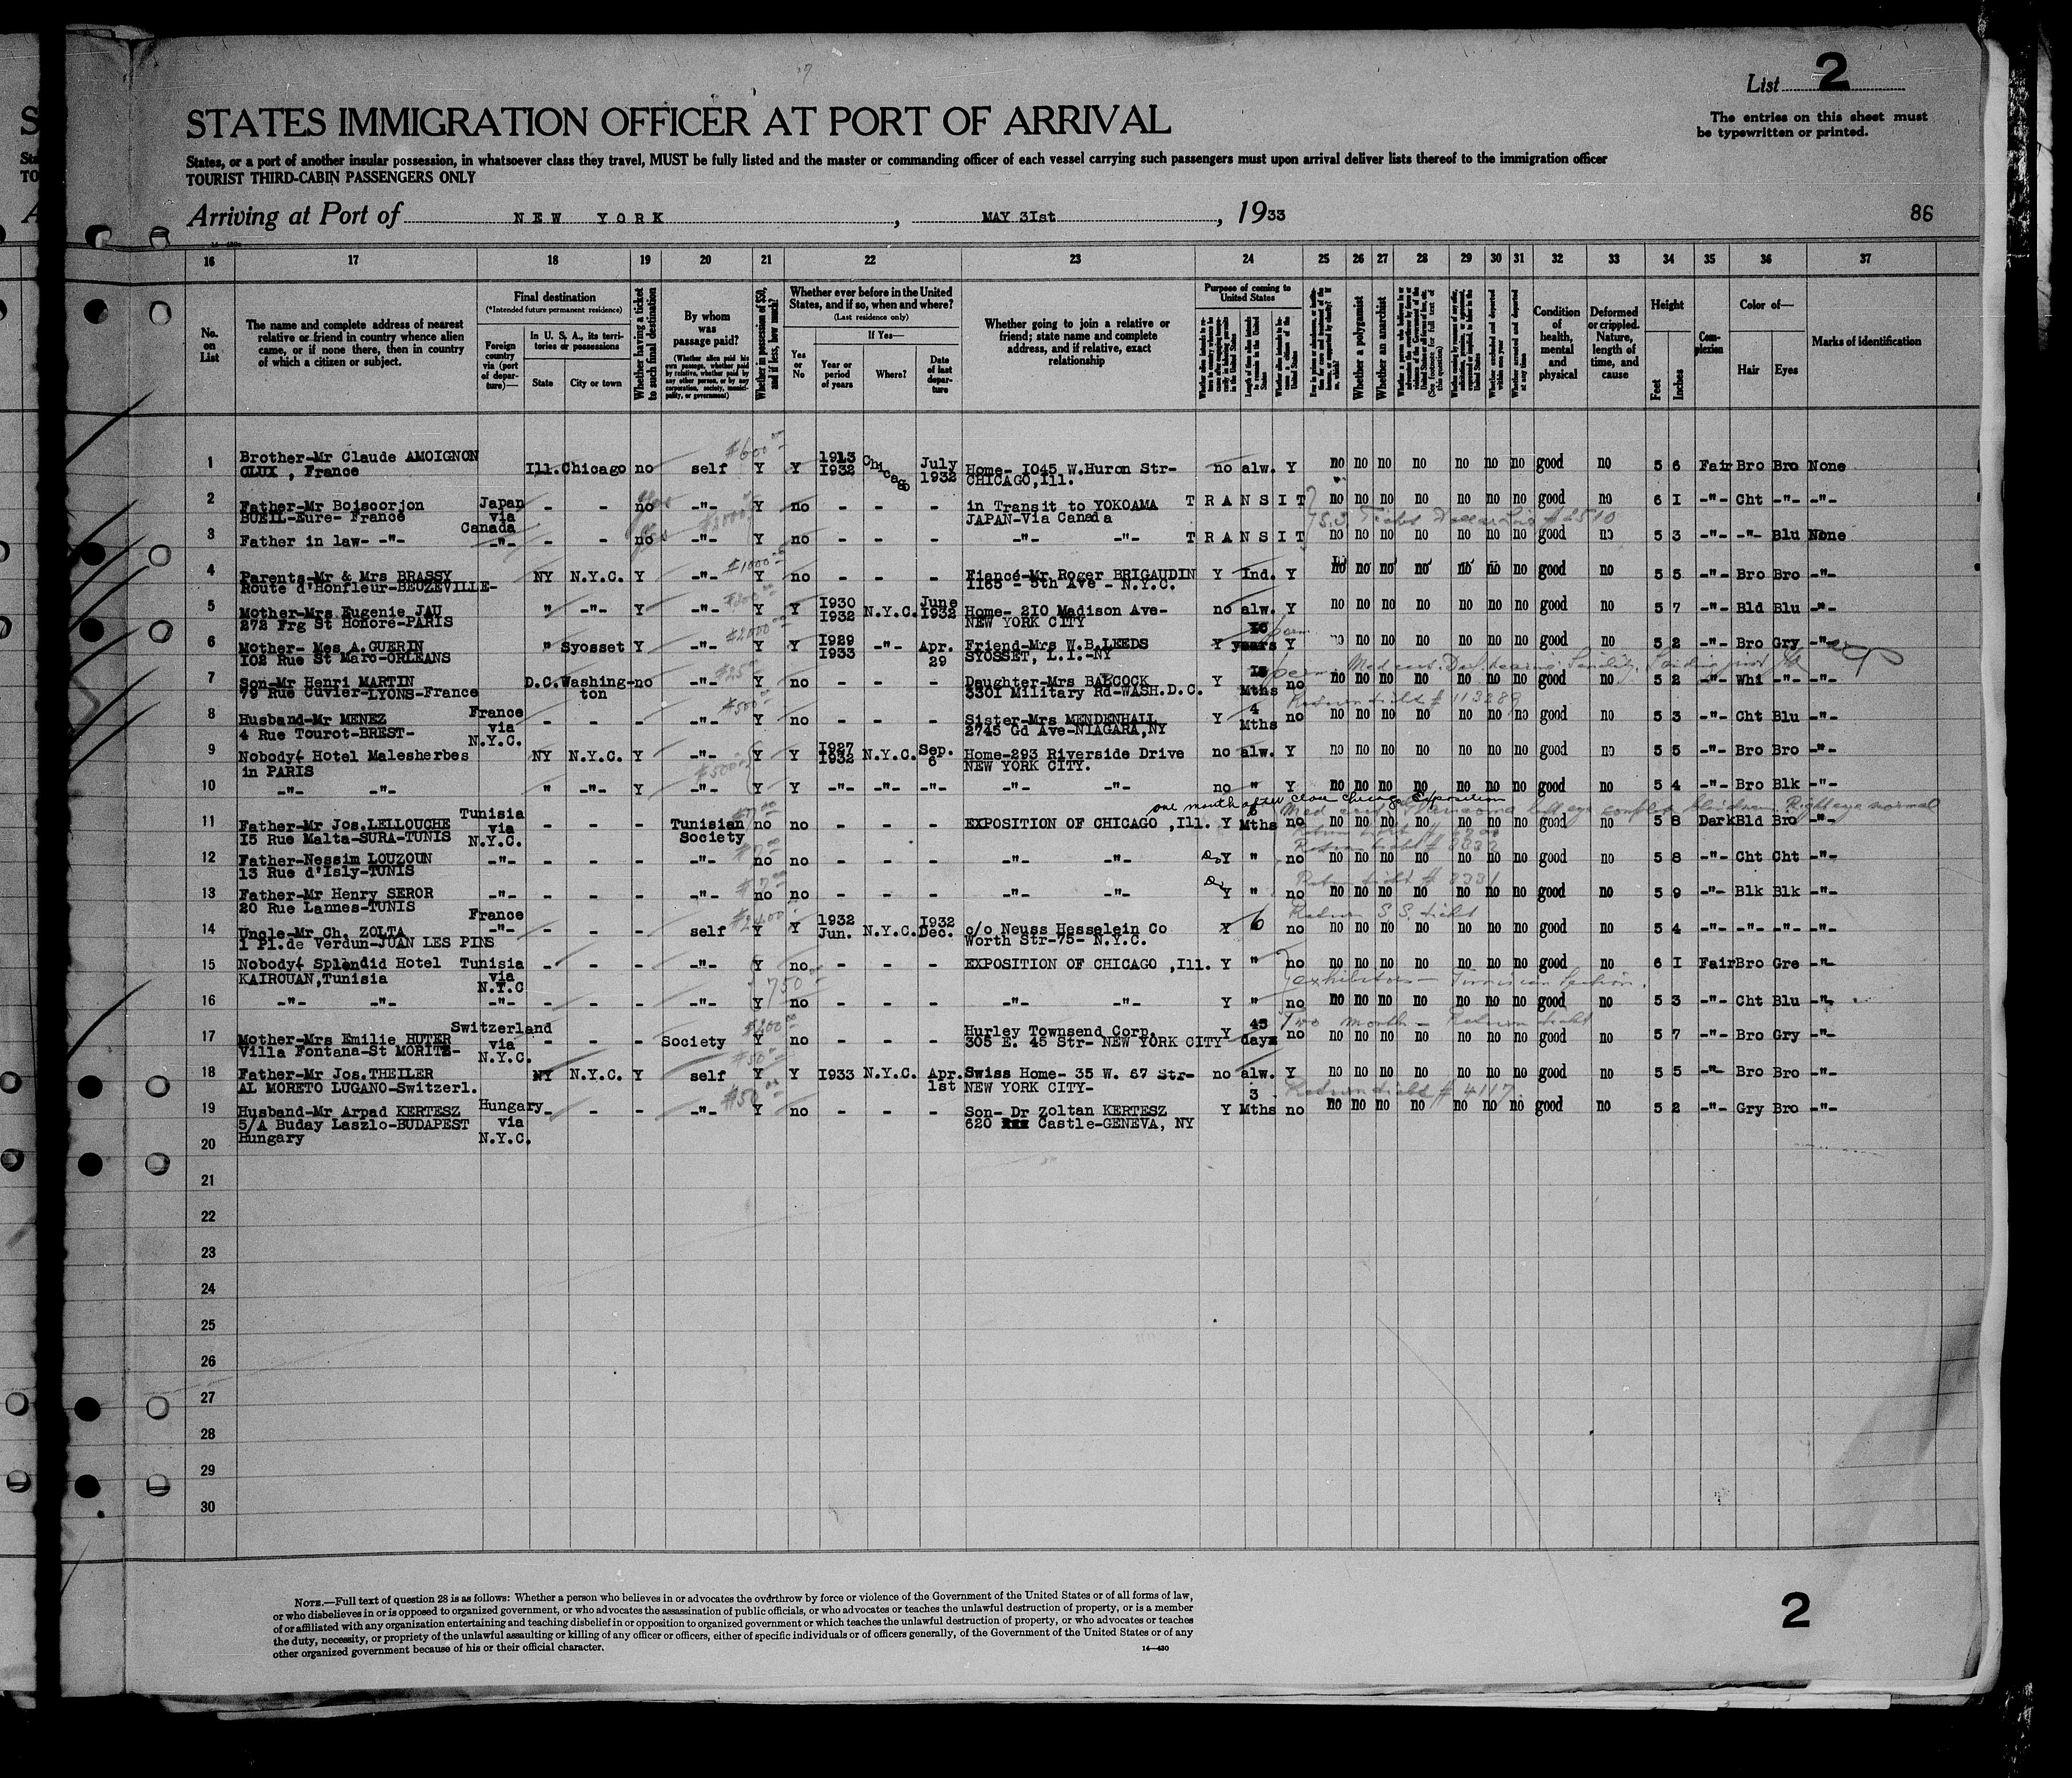 List 2
STATES IMMIGRATION OFFICER AT PORT OF ARRIVAL
The entries on this sheet must
be typewritten or printed.
States, or a port of another insular possession, in whatsoever class they travel, MUST be fully listed and the master or commanding officer of each vessel carrying such passengers must upon arrival deliver lists thereof to the immigration officer
TOURIST THIRD-CABIN PASSENGERS ONLY
Arriving at Port of NEW YORK, MAY 3Ist, 1933
86
16 17 18 19 20 21 22 23 24 25 26 27 28 29 30 31 32 33 34 35 36 37
No. on List
The name and complete address of nearest relative or friend in country whence alien came, or if none there, then in country of which a citizen or subject.
Final destination
(*Intended future permanent residence)
Foreign country via (port of departure)—
In U. S. A., its territories or possessions
State City or town
Whether having a ticket to such final destination
By whom was passage paid?
(Whether alien paid his own passage, whether paid by relative, whether paid by any other person, or by any corporation, society, municipality, or government)
Whether in possession of $50, and if less, how much?
Whether ever before in the United States, and if so, when and where?
(Last residence only)
Yes or No
If Yes—
Year or period of years
Where?
Date of last departure
Whether going to join a relative or friend; state name and complete address, and if relative, exact relationship
Purpose of coming to United States
Whether a polygamist
Whether an anarchist
Condition of health, mental and physical
Deformed or crippled. Nature, length of time, and cause
Height
Feet Inches
Complexion
Color of—
Hair Eyes
Marks of identification
1 Brother-Mr Claude AMOIGNON Ill. Chicago no self $600 Y Y 1913 I932 Chicago July 1932 Home- I045 W.Huron Str- no alw. Y no no no no no no no good no 5 6 Fair Bro Bro None
CLUX , France CHICAGO,Ill.
2 Father-Mr Boiscorjon Japan via Canada - - no -"- Y no - - - in Transit to YOKOAMA TRANSIT no no no no no no no good no 6 I -"- Cht -"- -"-
BUEIL-Eure- France JAPAN-Via Canada
3 Father in law- -"- -"- - - no -"- Y no - - - -"- -"- TRANSIT no no no no no no no good no 5 3 -"- -"- Blu None
4 Parents-Mr & Mrs BRASSY NY N.Y.C. Y -"- $1000 Y no - - - Fiancé-Mr Roger BRIGAUDIN Y Ind. Y no no no no no no no good no 5 5 -"- Bro Bro -"-
Route d'Honfleur-BEUZEVILLE- II65 - 5th Ave - N.Y.C.
5 Mother-Mrs Eugenie JAU " -"- Y -"- Y Y I930 I932 N.Y.C. June I932 Home- 2I0 Madison Ave- no alw. Y no no no no no no no good no 5 7 -"- Bld Blu -"-
272 Frg St Honoré-PARIS NEW YORK CITY
6 Mother- Mes A.GUERIN " Syosset Y -"- $2000 Y Y I929 I933 -"- Apr. 29 Friend-Mrs W.B.LEEDS Y years Y no no no no no no no good no 5 2 -"- Bro Gry -"-
I02 Rue St Marc-ORLEANS SYOSSET, L.I.-NY
7 Son-Mr Henri MARTIN D.C. Washington no -"- $25 Y no - - - Daughter-Mrs BABCOCK Y Mths no no no no no no no no good no 5 2 -"- Whi -"- -"-
79 Rue Cuvier-LYONS-France 330I Military Rd-WASH.D.C.
8 Husband-Mr MENEZ France via N.Y.C. - - - -"- $500 Y no - - - Sister-Mrs MENDENHALL Y 4 Mths no no no no no no no no good no 5 3 -"- Cht Blu -"-
4 Rue Tourot-BREST- 2745 Gd Ave-NIAGARA,NY
9 Nobody- Hotel Malesherbes NY N.Y.C. Y -"- Y Y I927 I932 N.Y.C. Sep. 6 Home-293 Riverside Drive no alw. Y no no no no no no no good no 5 5 -"- Bro Bro -"-
in PARIS NEW YORK CITY.
10 -"- -"- " -"- Y -"- Y Y -"- -"- -"- -"- -"- no " Y no no no no no no no good no 5 4 -"- Bro Blk -"-
one month after close Chicago Exposition
11 Father-Mr Jos.LELLOUCHE Tunisia via N.Y.C. - - - Tunisian Society no no - - - EXPOSITION OF CHICAGO ,Ill. Y 6 Mths no no no no no no no no good no 5 8 Dark Bld Bro -"-
I5 Rue Malta-SURA-TUNIS
12 Father-Nessim LOUZOUN -"- - - - -"- no no - - - -"- -"- Y " no no no no no no no no good no 5 8 -"- Cht Cht -"-
I3 Rue d'Isly-TUNIS
13 Father-Mr Henry SEROR -"- - - - -"- no no - - - -"- -"- Y " no no no no no no no no good no 5 9 -"- Blk Blk -"-
20 Rue Lannes-TUNIS
14 Uncle-Mr Ch. ZOLTA France -"- - - - self Y Y 1932 Jun. N.Y.C. I932 Dec. c/o Neuss Hesselein Co Y 6 no no no no no no no no good no 5 4 -"- -"- -"- -"-
I Pl.de Verdun-JUAN LES PINS Worth Str-75- N.Y.C.
15 Nobody- Splendid Hotel Tunisia via N.Y.C - - - -"- Y no - - - EXPOSITION OF CHICAGO ,Ill. Y " no no no no no no no no good no 6 I Fair Bro Gre -"-
KAIROUAN,Tunisia 750
exhibitors — Tunisian Section.
16 -"- -"- -"- - - - -"- Y no - - - -"- -"- Y " no no no no no no no no good no 5 3 -"- Cht Blu -"-
17 Mother-Mrs Emilie HUTER Switzerland via N.Y.C. - - - Society $200 Y no - - - Hurley Townsend Corp. Y 45 days no no no no no no no no good no 5 7 -"- Bro Gry -"-
Villa Fontana-St MORITZ- 305 E. 45 Str- NEW YORK CITY
Two months — Return ticket
18 Father-Mr Jos.THEILER NY N.Y.C. Y self $50 Y Y I933 N.Y.C. Apr. 1st Swiss Home- 35 W. 67 Str- no alw. Y no no no no no no no good no 5 5 -"- Bro Bro -"-
AL MORETO LUGANO-Switzerl. NEW YORK CITY-
Return ticket # 4117
19 Husband-Mr Arpad KERTESZ Hungary via N.Y.C. - - - -"- $50 Y no - - - Son- Dr Zoltan KERTESZ Y 3 Mths no no no no no no no no good no 5 2 -"- Gry Bro -"-
5/A Buday Laszlo-BUDAPEST 620 Castle-GENEVA, NY
Hungary
20
21
22
23
24
25
26
27
28
29
30
NOTE.—Full text of question 28 is as follows: Whether a person who believes in or advocates the overthrow by force or violence of the Government of the United States or of all forms of law,
or who disbelieves in or is opposed to organized government, or who advocates the assassination of public officials, or who advocates or teaches the unlawful destruction of property, or is a member
of or affiliated with any organization entertaining and teaching disbelief in or opposition to organized government or which teaches the unlawful destruction of property, or who advocates or teaches
the duty, necessity, or propriety of the unlawful assaulting or killing of any officer or officers, either of specific individuals or of officers generally, of the Government of the United States or of any
other organized government because of his or their official character.
14—430
2